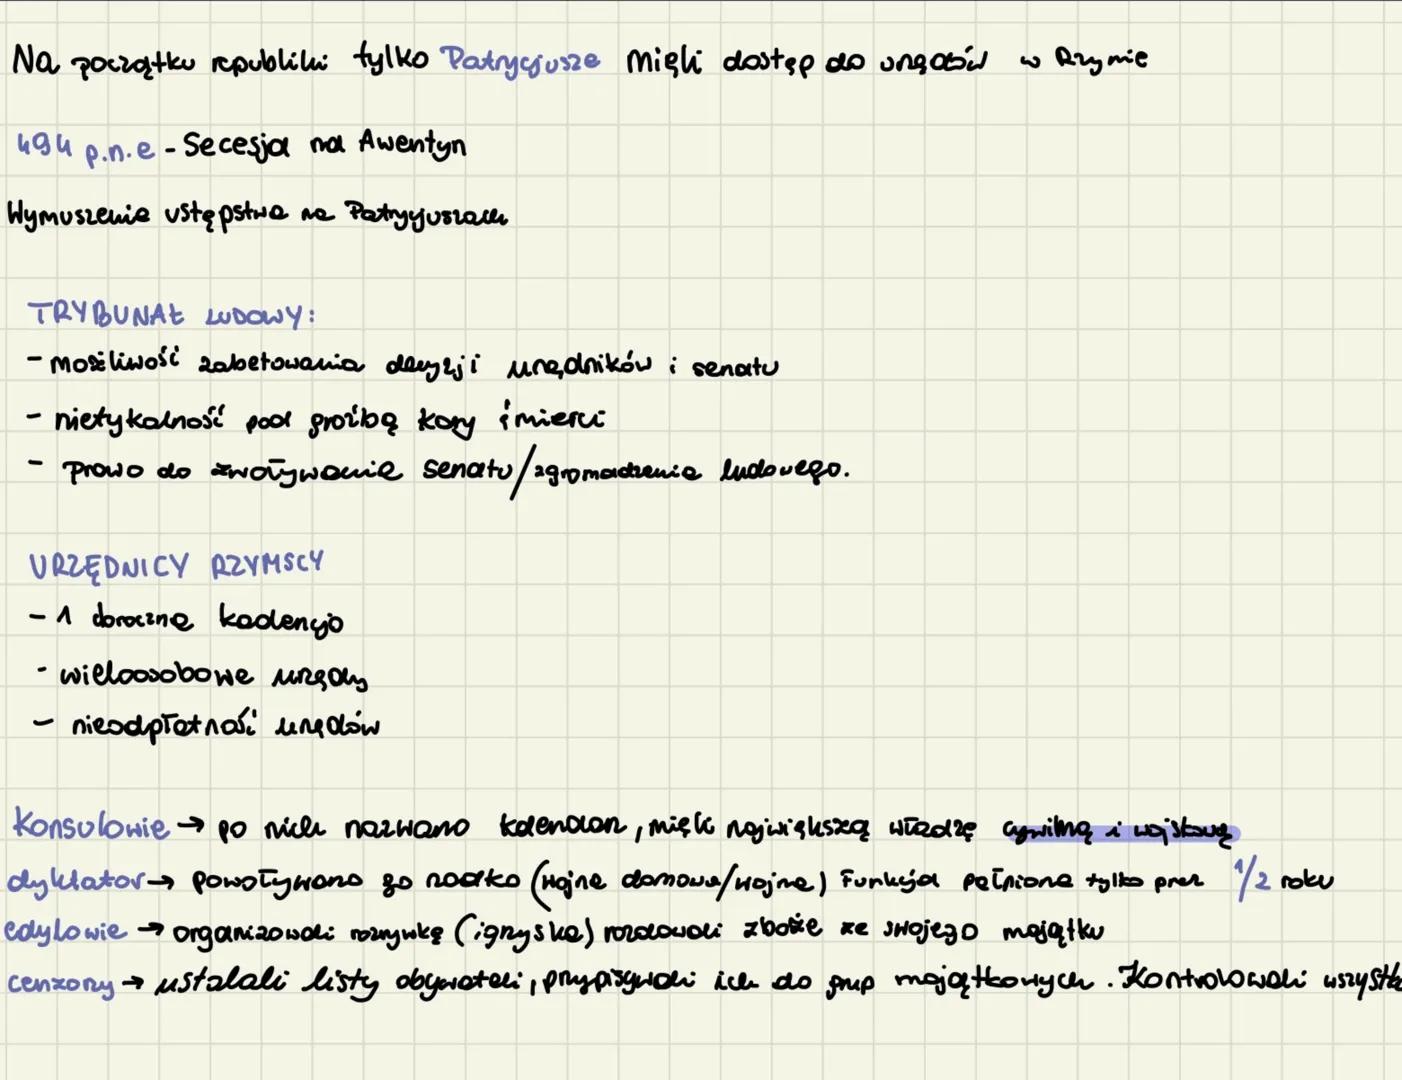 Na początku republiki tylko Patrycjusze mięli dostęp do urzędów w Rzymie
494 p.n.e - Secesja na Awentyn
Wymuszenie ustępstwa na Patrycjuszach
TRYBUNAŁ LUDOWY:
- możliwość zabetowania decyzji urzędników i senatu
- nietykalność pod groźbą kary śmierci
- prawo do zwoływanie senatu/zgromadzenia ludowego.
URZĘDNICY RZYMSCY
- 1 doroczna kadencja
- wieloosobowe urzędy
- nieodpłatność urzędów
Konsulowie → po nich nazwano kalendarz, mięli największą władzę cywilną i wojskową
dyktator → powoływano go rzadko (wojna domowa/wojna) Funkcja pełniona tylko przez 1/2 roku
edylowie → organizowali rozrywkę (igrzyska) rozdawali zboże ze swojego majątku
cenzorzy → ustalali listy obywateli, przypisywali ich do grup majątkowych. Kontrolowali wszystk